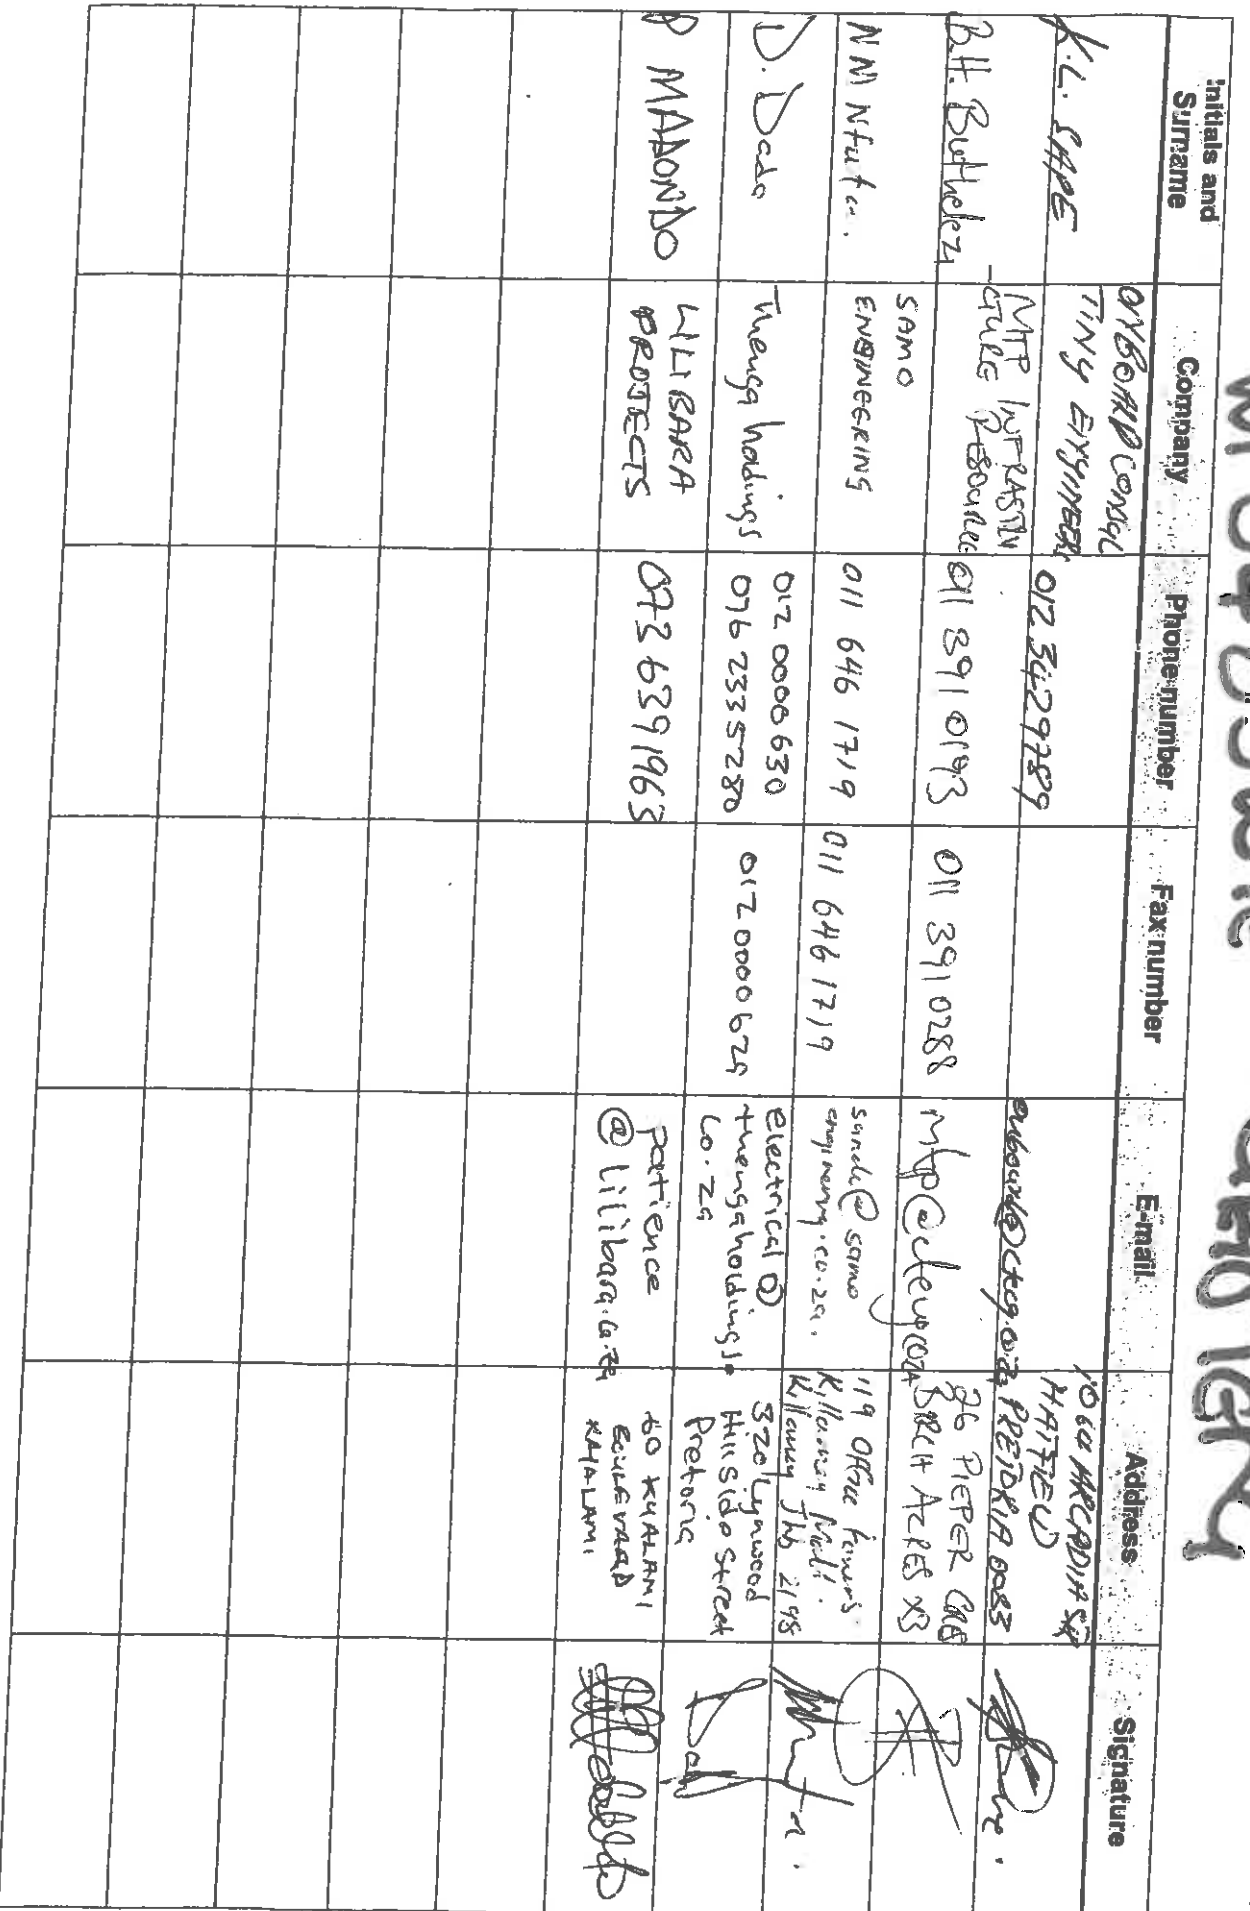 Initials and Surname Company Phone number Fax number E-mail Address Signature
K.L. SAPE
ONBOARD CONSUL
TING ENGINEERS
012 342 9789
onboard@ctecg.co.za
1064 ARCADIA STR
HATFIELD
PRETORIA 0083
B.H. Buthelezi
MTP INFRASTRU
-CTURE RESOURCE
011 391 0193
011 391 0288
26 PIEPER CRES
BIRCH ACRES X3
NM Nfuta.
SAMO
ENGINEERING
011 646 1719
011 646 1719
@ samo
engineering.co.za.
119 Office Towers
Killarney Mall.
Killarney Jhb 2198
D. Dado
Thenga holdings
012 0000 630
076 233 5280
012 0000 629
electrical @
thengaholdings.
co.za
320 Lynwood
Hillside Street
Pretoria
P MADONDO
LILIBARA
PROJECTS
073 639 1963
patience
@lilibara.co.za
60 KYALAMI
BOULEVARD
KYALAMI